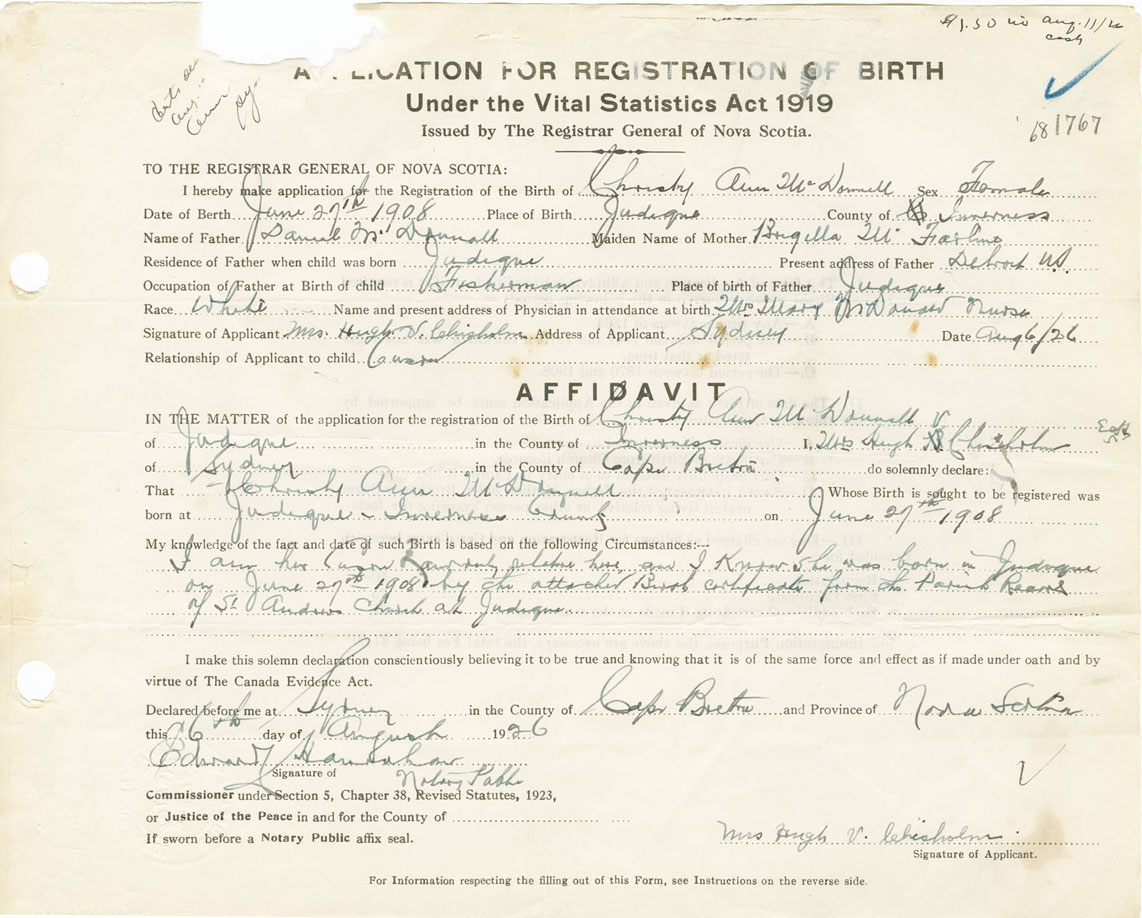 $1.50 Aug. 11/26
cash
APPLICATION FOR REGISTRATION OF BIRTH
Under the Vital Statistics Act 1919
Issued by The Registrar General of Nova Scotia.
681767
TO THE REGISTRAR GENERAL OF NOVA SCOTIA:
I hereby make application for the Registration of the Birth of Christy Ann McDonnell Sex Female
Date of Berth June 27th 1908 Place of Birth Judique County of Inverness
Name of Father Daniel McDonnell Maiden Name of Mother Mc
Residence of Father when child was born Judique Present address of Father Detroit U.S.
Occupation of Father at Birth of child Fisherman Place of birth of Father Judique
Race White Name and present address of Physician in attendance at birth Mrs Mary McDonald Nurse
Signature of Applicant Mrs. Hugh V. Chisholm Address of Applicant Sydney Date Aug 6/26
Relationship of Applicant to child Cuson
AFFIDAVIT
IN THE MATTER of the application for the registration of the Birth of Christy Ann McDonnell
of Judique in the County of Inverness I, Mrs Hugh V Chisholm
of Sydney in the County of Cape Breton do solemnly declare:
That Christy Ann McDonnell Whose Birth is sought to be registered was
born at Judique Inverness County on June 27th 1908
My knowledge of the fact and date of such Birth is based on the following Circumstances:--
I am her Cuson and I Know she was born in Judique
on June 27th 1908 by the attached Birth certificate from the Parish Record
of St. Andrews Church at Judique.
I make this solemn declaration conscientiously believing it to be true and knowing that it is of the same force and effect as if made under oath and by
virtue of The Canada Evidence Act.
Declared before me at Sydney in the County of Cape Breton and Province of Nova Scotia
this 6th day of August 1926
Edward Hanrahan
Signature of Notary Public
Commissioner under Section 5, Chapter 38, Revised Statutes, 1923,
or Justice of the Peace in and for the County of
If sworn before a Notary Public affix seal.
Mrs Hugh V. Chisholm
Signature of Applicant.
For Information respecting the filling out of this Form, see Instructions on the reverse side.